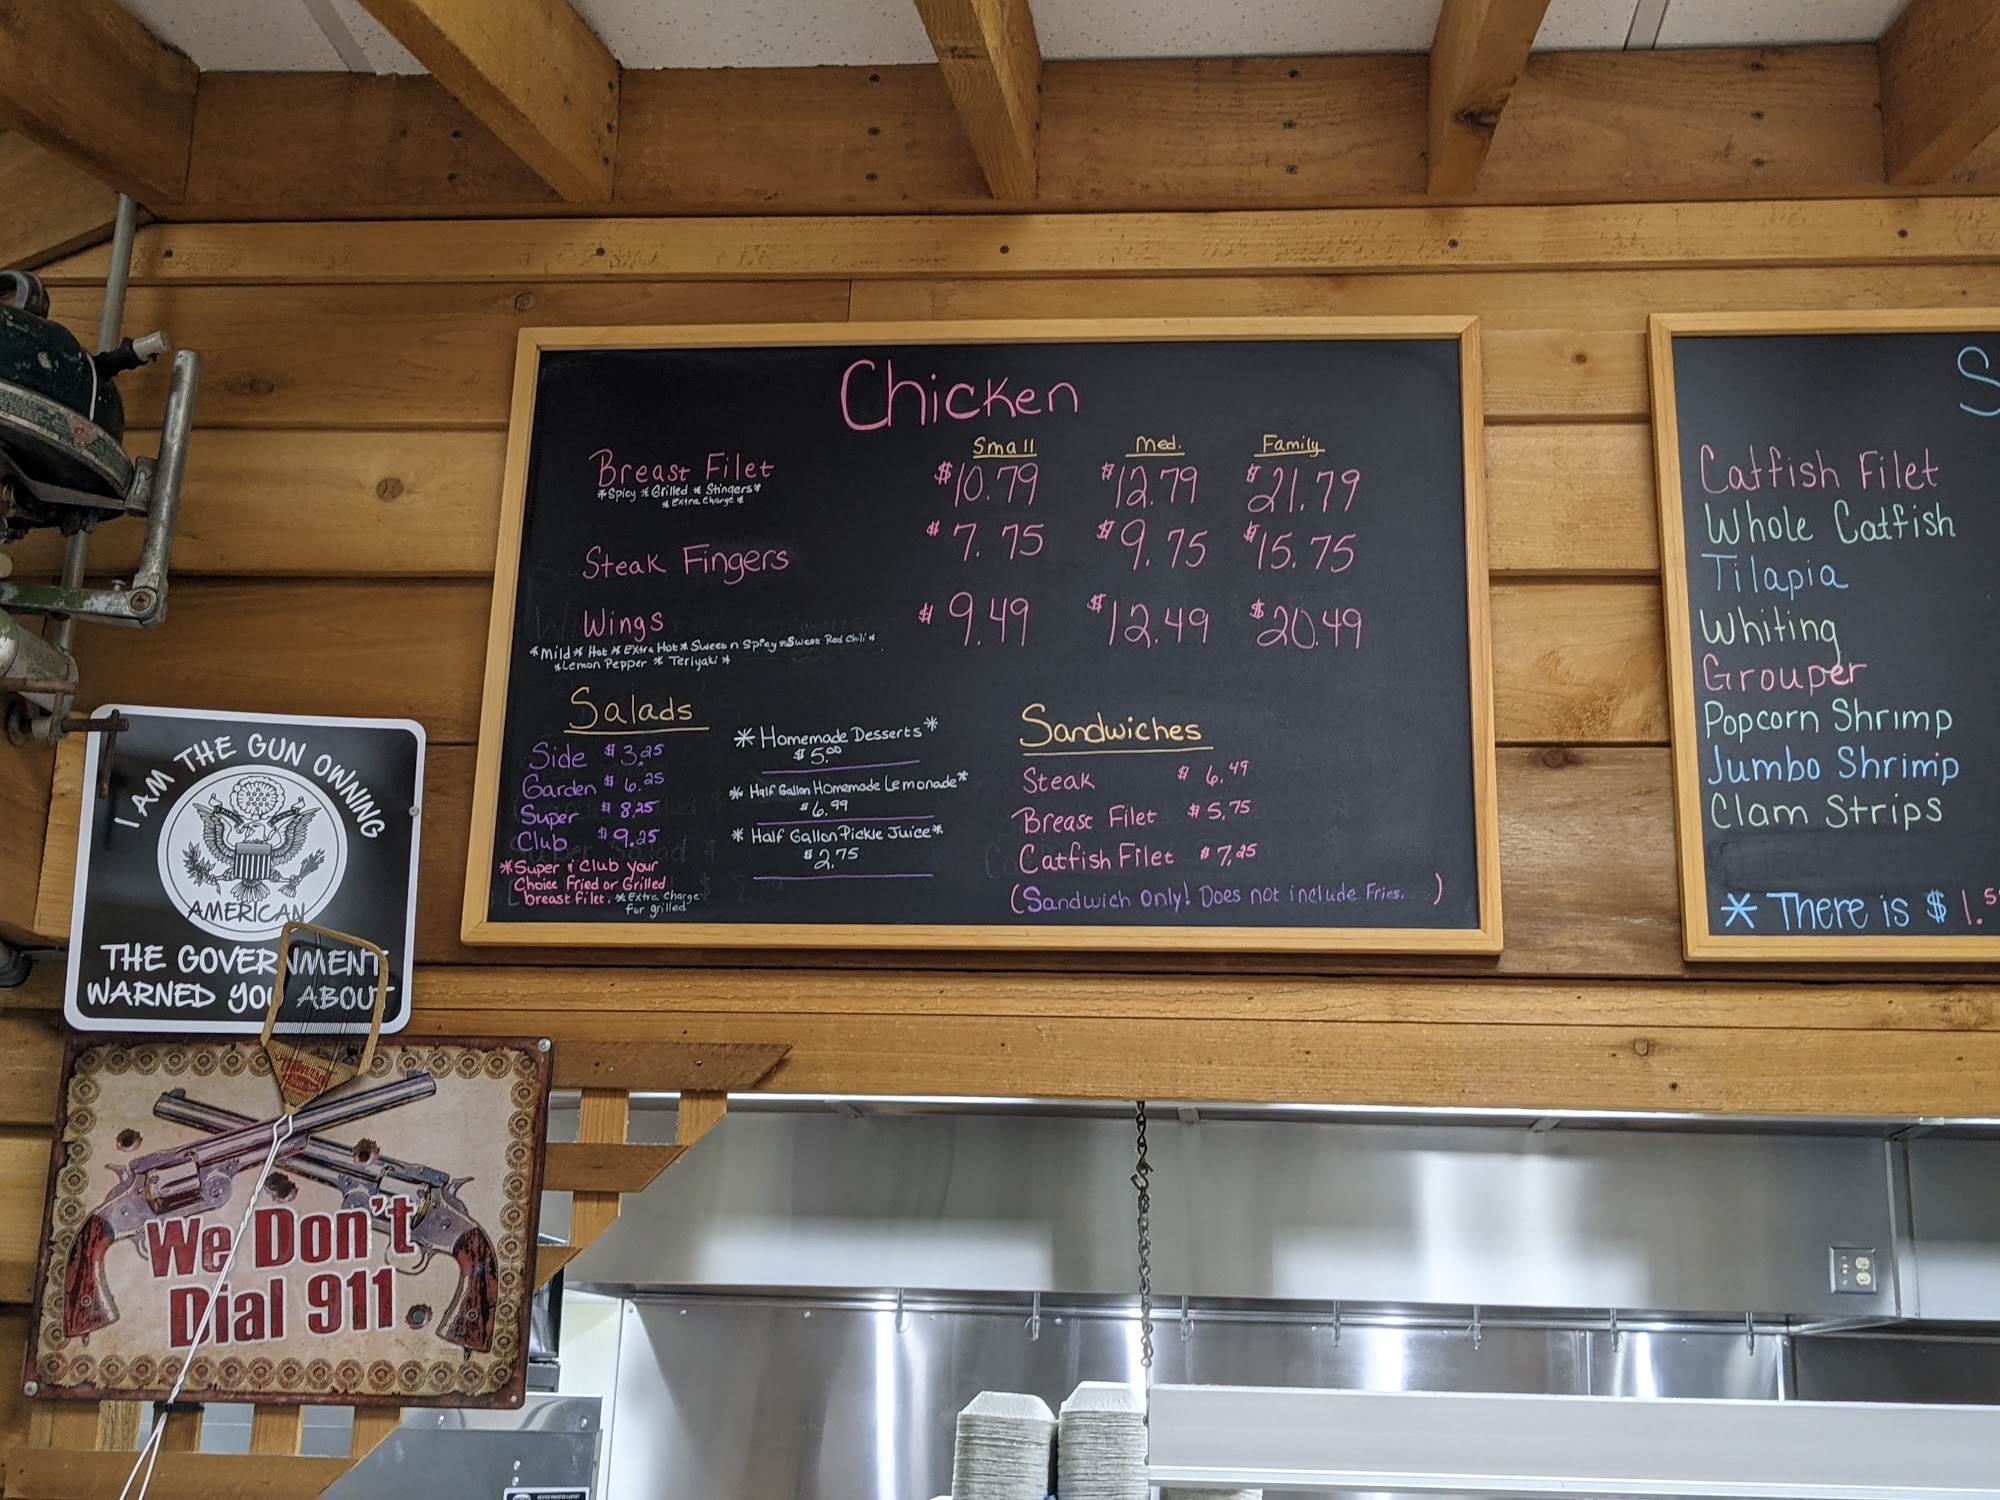 Chicken
Small Med. Family
Breast Filet $10.79 $12.79 $21.79
*Spicy *Grilled * Stingers*
*Extra Charge*
Steak Fingers $7.75 $9.75 $15.75
Wings $9.49 $12.49 $20.49
*Mild * Hot * Extra Hot * Sweet n Spicy * Sweet Red Chili *
*Lemon Pepper * Teriyaki *
Salads
Side $3.25
Garden $6.25
Super $8.25
Club $9.25
*Super & Club your
Choice Fried or Grilled
breast filet. *Extra Charge
for grilled
*Homemade Desserts*
$5.00
*Half Gallon Homemade Lemonade*
$6.99
*Half Gallon Pickle Juice*
$2.75
Sandwiches
Steak $6.49
Breast Filet $5.75
Catfish Filet $7.25
(Sandwich Only! Does not include Fries. )
S
Catfish Filet
Whole Catfish
Tilapia
Whiting
Grouper
Popcorn Shrimp
Jumbo Shrimp
Clam Strips
* There is $1.5
I AM THE GUN OWNING
AMERICAN
THE GOVERNMENT
WARNED YOU ABOUT
We Don't
Dial 911